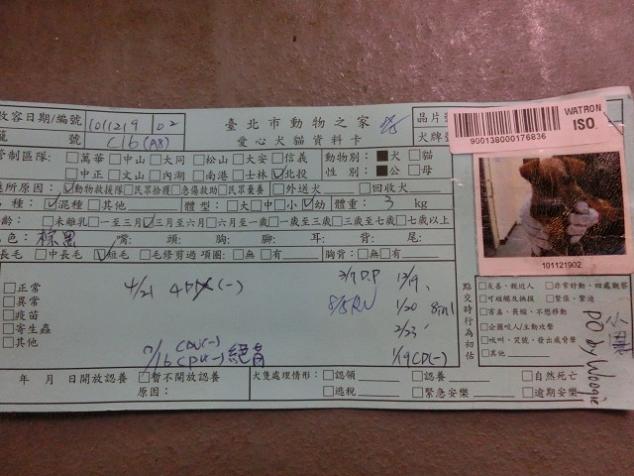 收容日期/編號 1011219 02 臺北市動物之家 晶片號
籠號 C16(A8) 愛心犬貓資料卡 犬牌號
管制區隊: □萬華 □中山 □大同 □松山 □大安 □信義 動物別: ■犬 □貓
□中正 □文山 □內湖 □南港 □士林 ☑北投 性別: ■公 □母
進所原因: ☑動物救援隊 □民眾拾獲 □急傷救助 □民眾棄養 □外送犬 □回收犬
品種: ☑混種 □其他 體型: □大 □中 □小 ☑幼 體重: 3 kg
年齡: □未離乳 □一至三月 ☑三月至六月 □六月至一歲 □一歲至三歲 □三歲至七歲 □七歲以上
毛色: 棕黑 嘴: 頭: 胸: 腳: 耳: 背: 尾:
□長毛 □中長毛 ☑短毛 □毛修剪過 項圈: □無 □有 胸背: □無 □有
□正常
□異常
□疫苗
□寄生蟲
□其他
4/21 4DX(-)
7/16 CDV(-) CPV(-) 絕育
8/5 RV
12/19
1/20 8in1
1/19 CD(-)
年 月 日開放認養 □暫不開放認養 原因:
犬隻處理情形: □認領 □認養 □自然死亡
□逃脫 □緊急安樂 □逾期安樂
WATRON
ISO
900138000176836
101121902
點交時行為初估
□友善、親近人 □非常好動、四處觀察
□可碰觸及撫摸 □緊張、緊迫
□害羞、畏縮、不想移動
□企圖咬人/主動攻擊
□吠叫、哭號、發出威脅聲
□其他
小黑
PO by Woogie